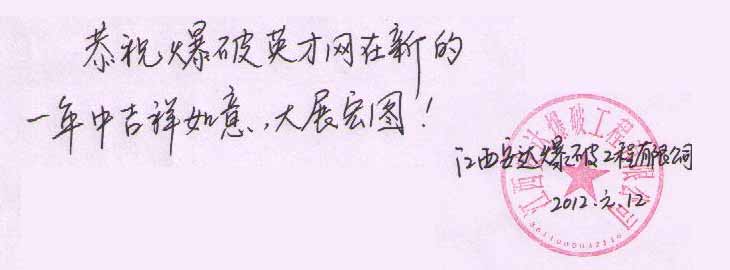 恭祝爆破英才网在新的
一年中吉祥如意,大展宏图!
江西安达爆破工程有限公司
2012.元.12
江西安达爆破工程有限公司